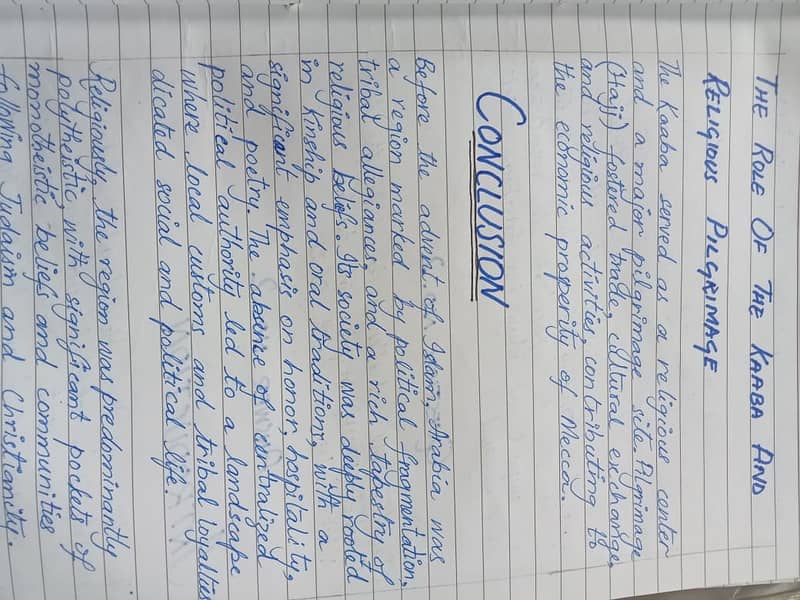 THE ROLE OF THE KAABA AND
RELIGIOUS PILGRIMAGE
The Kaaba served as a religious center
and a major pilgrimage site. Plgrimage
(Hajj) fostered trade, cultural exchange,
and religious activities, contributing to
the economic properity of Mecca.
CONCLUSION
Before the advent of Islam, Arabia was
a region marked by political fragmentation,
tribal allegiances, and a rich tapestry of
religious beliefs. Its society was deeply rooted
in kinship and oral traditions, with a
significant emphasis on honor, hospitality,
and poetry. The absence of centralized
political authority led to a landscape
where local customs and tribal loyalties
dicated social and political life.
Religiously, the region was predominantly
polytheistic, with significant pockets of
monotheistic beliefs and communities
following Judaism and Christianity.